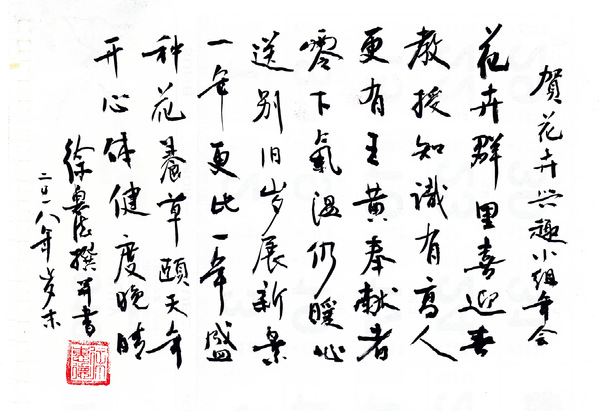 賀花卉兴趣小组年会
花卉群里喜迎春
教授知識有高人
更有王黄奉献者
零下氣温仍暖心
送别旧岁展新景
一年更比一年盛
种花養草頤天年
开心体健度晚晴
徐 撰并書
二〇一八年岁末